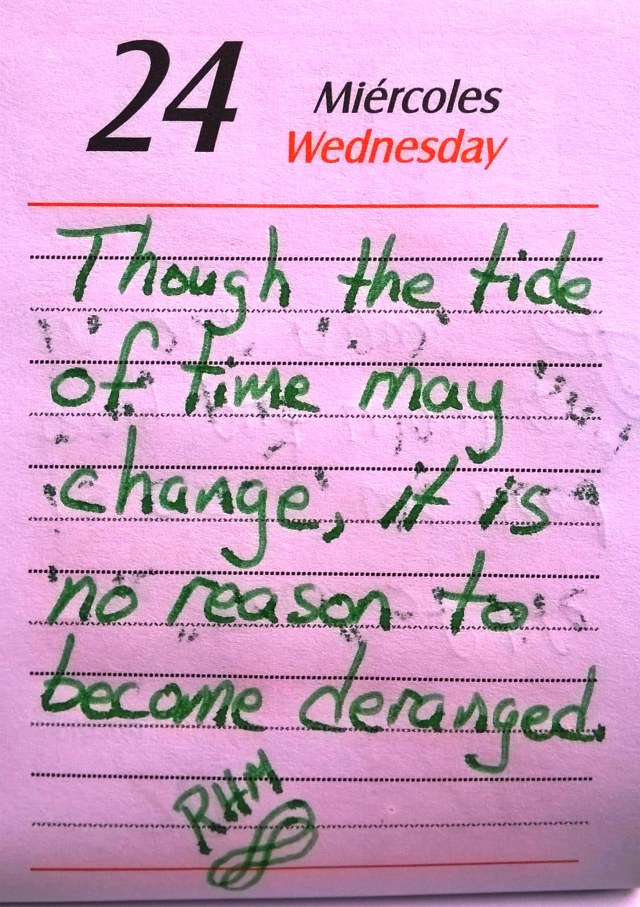 24
Miércoles
Wednesday
Though the tide
of time may
change, it is
no reason to
become deranged.
RHM